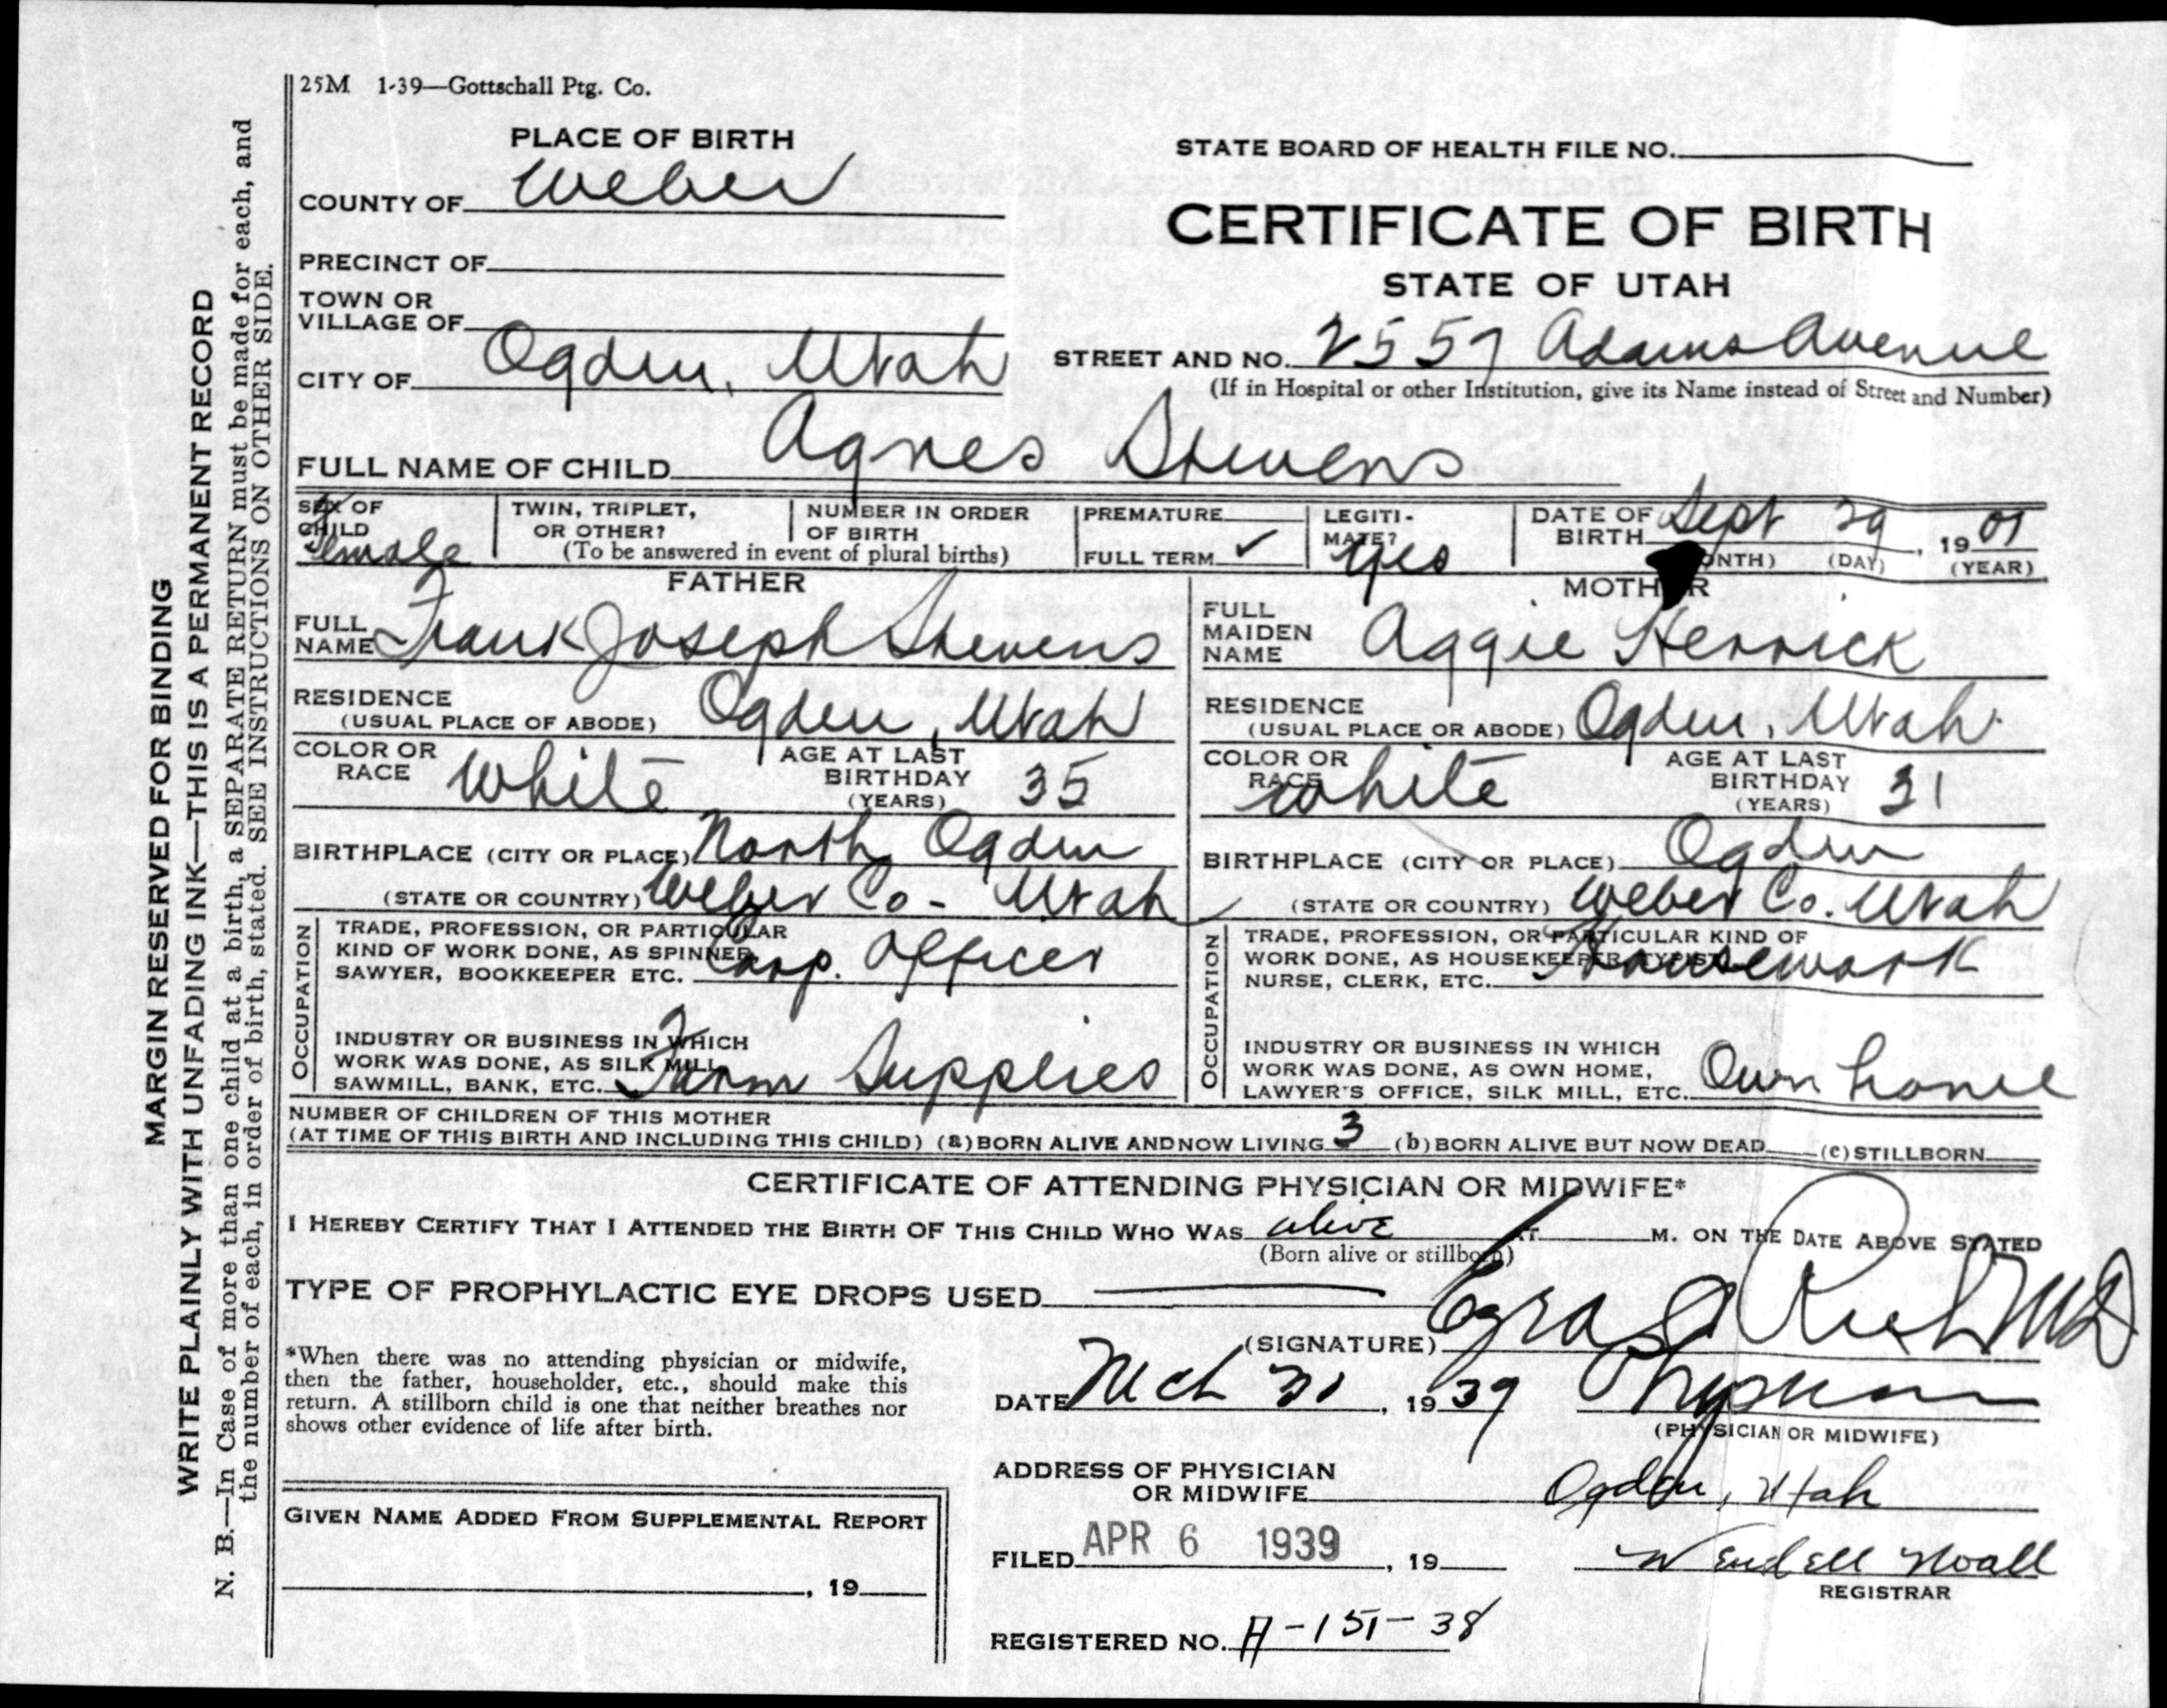 25M 1-39—Gottschall Ptg. Co.
PLACE OF BIRTH
COUNTY OF Weber
PRECINCT OF
TOWN OR
VILLAGE OF
CITY OF Ogden, Utah
STATE BOARD OF HEALTH FILE NO.
CERTIFICATE OF BIRTH
STATE OF UTAH
STREET AND NO. 2557 Adams Avenue
(If in Hospital or other Institution, give its Name instead of Street and Number)
FULL NAME OF CHILD Agnes Stevens
SEX OF
CHILD
Female
TWIN, TRIPLET,
OR OTHER?
NUMBER IN ORDER
OF BIRTH
(To be answered in event of plural births)
PREMATURE
FULL TERM ✓
LEGITI-
MATE?
yes
DATE OF
BIRTH Sept 29, 1901
(MONTH) (DAY) (YEAR)
FATHER
FULL
NAME Frank Joseph Stevens
RESIDENCE
(USUAL PLACE OF ABODE) Ogden, Utah
COLOR OR
RACE White
AGE AT LAST
BIRTHDAY 35
(YEARS)
BIRTHPLACE (CITY OR PLACE) North Ogden
(STATE OR COUNTRY) Weber Co - Utah
OCCUPATION
TRADE, PROFESSION, OR PARTICULAR
KIND OF WORK DONE, AS SPINNER,
SAWYER, BOOKKEEPER ETC. Corp. Officer
INDUSTRY OR BUSINESS IN WHICH
WORK WAS DONE, AS SILK MILL,
SAWMILL, BANK, ETC. Farm Supplies
MOTHER
FULL
MAIDEN
NAME Aggie Herrick
RESIDENCE
(USUAL PLACE OR ABODE) Ogden, Utah.
COLOR OR
RACE White
AGE AT LAST
BIRTHDAY 31
(YEARS)
BIRTHPLACE (CITY OR PLACE) Ogden
(STATE OR COUNTRY) Weber Co. Utah
OCCUPATION
TRADE, PROFESSION, OR PARTICULAR KIND OF
WORK DONE, AS HOUSEKEEPER, TYPIST,
NURSE, CLERK, ETC. Housework
INDUSTRY OR BUSINESS IN WHICH
WORK WAS DONE, AS OWN HOME,
LAWYER'S OFFICE, SILK MILL, ETC. Own home
NUMBER OF CHILDREN OF THIS MOTHER
(AT TIME OF THIS BIRTH AND INCLUDING THIS CHILD) (a) BORN ALIVE AND NOW LIVING 3 (b) BORN ALIVE BUT NOW DEAD (c) STILLBORN
CERTIFICATE OF ATTENDING PHYSICIAN OR MIDWIFE*
I HEREBY CERTIFY THAT I ATTENDED THE BIRTH OF THIS CHILD WHO WAS alive AT M. ON THE DATE ABOVE STATED
(Born alive or stillborn)
TYPE OF PROPHYLACTIC EYE DROPS USED
(SIGNATURE) Ezra Rich MD
*When there was no attending physician or midwife,
then the father, householder, etc., should make this
return. A stillborn child is one that neither breathes nor
shows other evidence of life after birth.
DATE Mch 31, 1939
(PHYSICIAN OR MIDWIFE)
ADDRESS OF PHYSICIAN
OR MIDWIFE Ogden, Utah
FILED APR 6 1939, 19
Wendell Noall
REGISTRAR
REGISTERED NO. A-151-38
GIVEN NAME ADDED FROM SUPPLEMENTAL REPORT
, 19
MARGIN RESERVED FOR BINDING
WRITE PLAINLY WITH UNFADING INK—THIS IS A PERMANENT RECORD
N. B.—In Case of more than one child at a birth, a SEPARATE RETURN must be made for each, and
the number of each, in order of birth, stated. SEE INSTRUCTIONS ON OTHER SIDE.